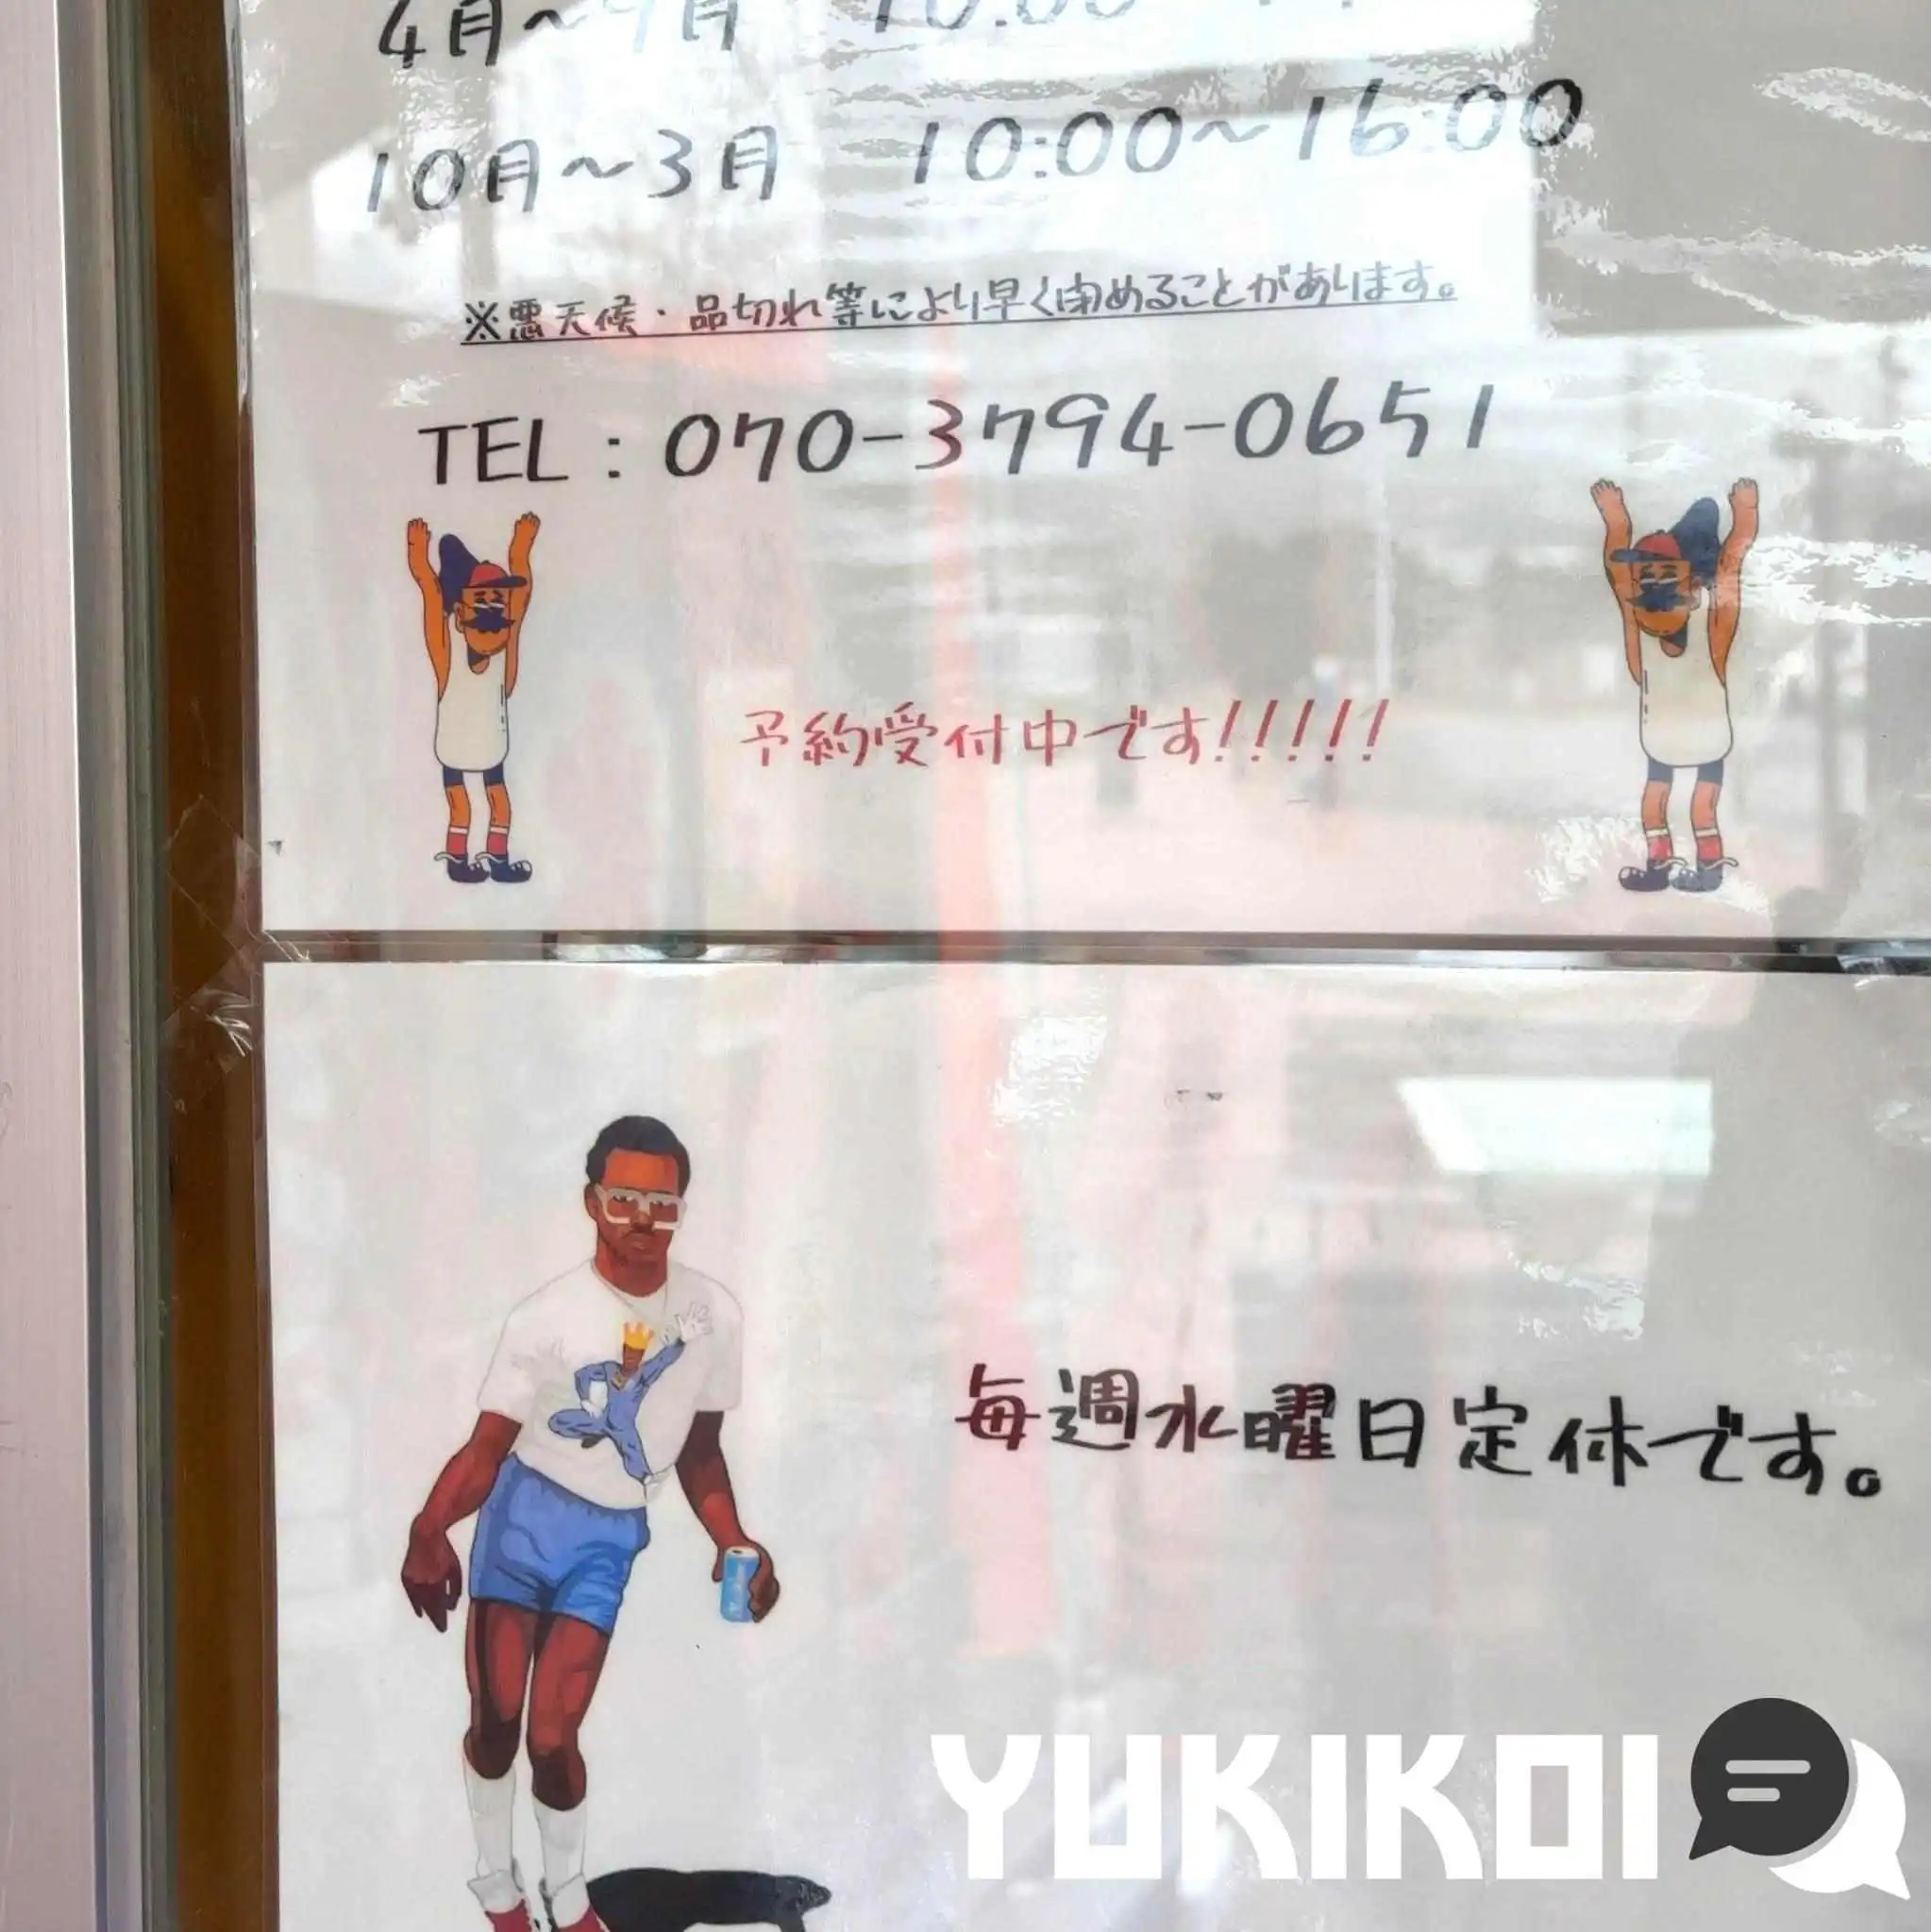 4月～9月 10:00
10月～3月 10:00～16:00
※悪天候・品切れ等により早く閉めることがあります。
TEL：070-3794-0651
予約受付中です!!!!!
毎週水曜日定休です。
YUKIKOI